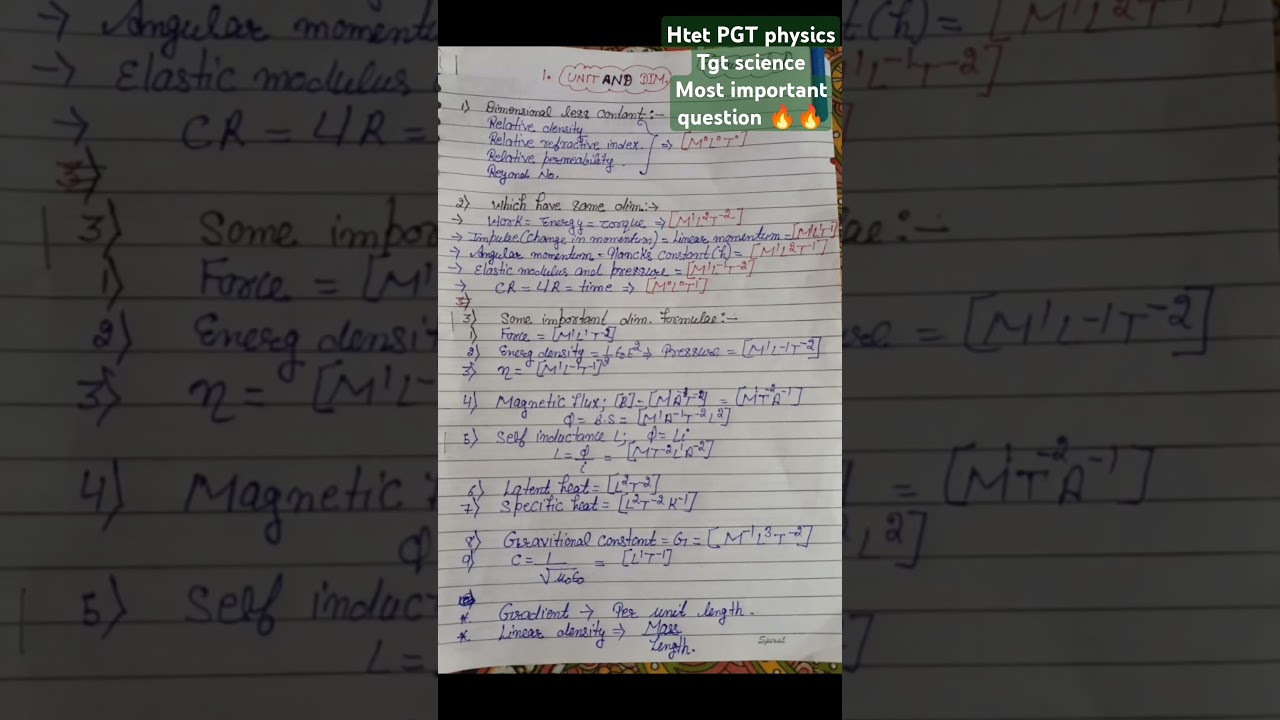 Htet PGT physics
Tgt science
Most important
question 🔥🔥
1. UNIT AND DIM.
1) Dimensional less contant:-
Relative density
Relative refractive index. ⇒ [M⁰L⁰T⁰]
Relative permeability.
Reyond No.
2) Which have same dim:→
→ Work = Energy = Torque ⇒ [M¹L²T⁻²]
→ Impulse (change in momentum) = Linear momentum = [MLT⁻¹]
→ Angular momentum = Planck's constant (h) = [M¹L²T⁻¹]
→ Elastic modulus and pressure = [M¹L⁻¹T⁻²]
→ CR = L/R = time ⇒ [M⁰L⁰T¹]
3)
3) Some important dim. formulae:-
1) Force = [M¹L¹T⁻²]
2) Energ density = 1/2 ε₀E² ⇒ Pressure = [M¹L⁻¹T⁻²]
3) η = [M¹L⁻¹T⁻¹]
4) Magnetic flux; [B] = = [M¹T⁻²A⁻¹]
Φ = B.S = [M¹A⁻¹T⁻²L²]
5) Self inductance L; Φ = Li
L = Φ/i = [MT⁻²L¹A⁻²]
6) Latent heat = [L²T⁻²]
7) Specific heat = [L²T⁻²K⁻¹]
8) Gravitional constant = G = [M⁻¹L³T⁻²]
9) C = 1/√μ₀ε₀ = [L¹T⁻¹]
* Gradient → Per unit length.
* Linear density ⇒ Mass/Length.
Spiral